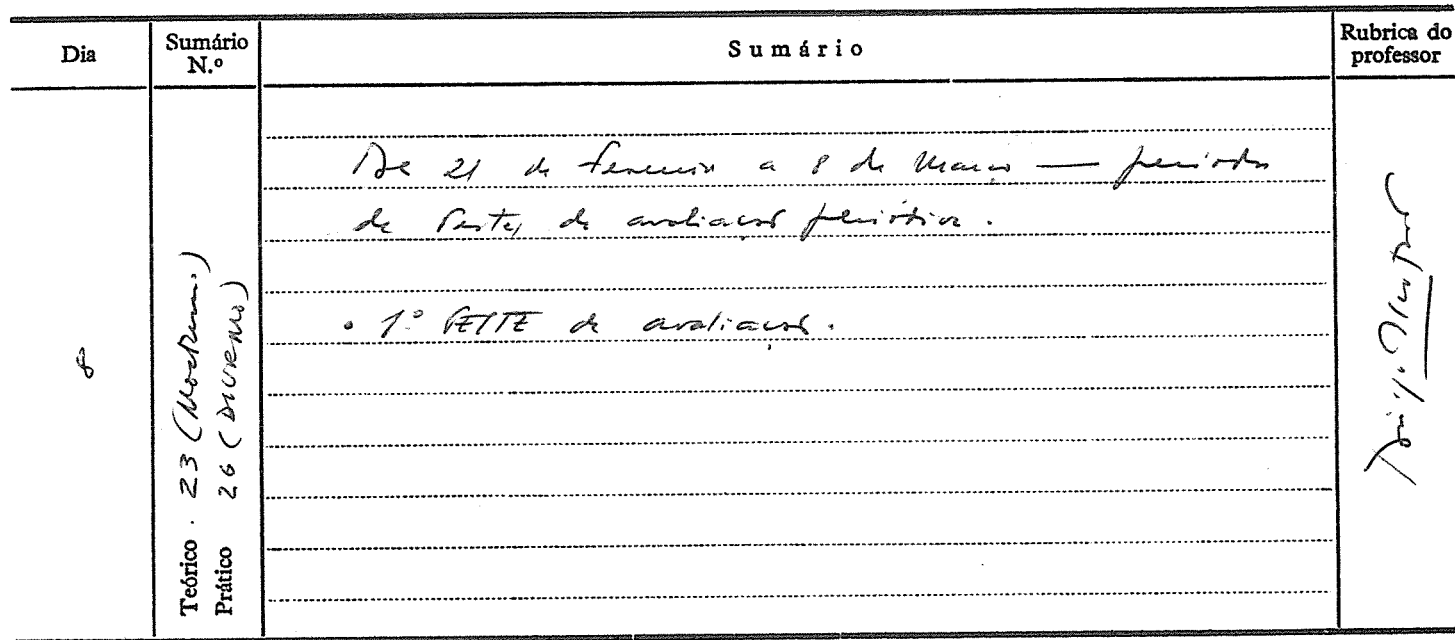 Dia
Sumário N.º
Sumário
Rubrica do professor
8
Teórico . 23 (Nocturno)
Prático 26 (DIURNO)
De 21 de Fevereiro a 8 de Março — período
de testes de avaliação periódica.
. 1º TESTE de avaliação.